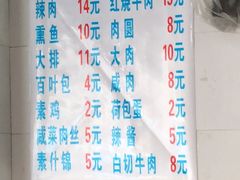 辣肉 14元 红烧牛肉 15元
熏鱼 10元 肉圆 8元
大排 11元 大肉 10元
百叶包 4元 咸肉 8元
素鸡 2元 荷包蛋 2元
咸菜肉丝 5元 辣酱 5元
素什锦 5元 白切牛肉 8元